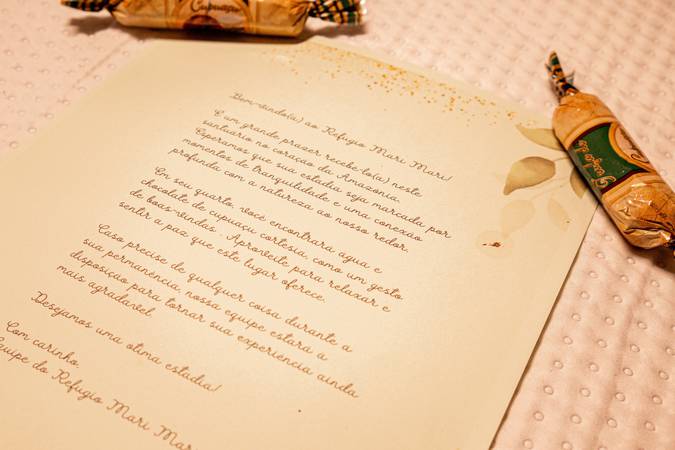 Cupuaçu
Bem-vindo(a) ao Refugio Mari Mari!
É um grande prazer recebe-lo(a) neste
santuário no coração da Amazônia.
Esperamos que sua estadia seja marcada por
momentos de tranquilidade e uma conexão
profunda com a natureza ao nosso redor.
Em seu quarto, você encontrara agua e
chocolate de cupuaçu cortesia, como um gesto
de boas-vindas. Aproveite para relaxar e
sentir a paz que este lugar oferece.
Caso precise de qualquer coisa durante a
sua permanência, nossa equipe estará a
disposição para tornar sua experiência ainda
mais agradável.
Desejamos uma otima estadia!
Com carinho,
Equipe do Refugio Mari Mari